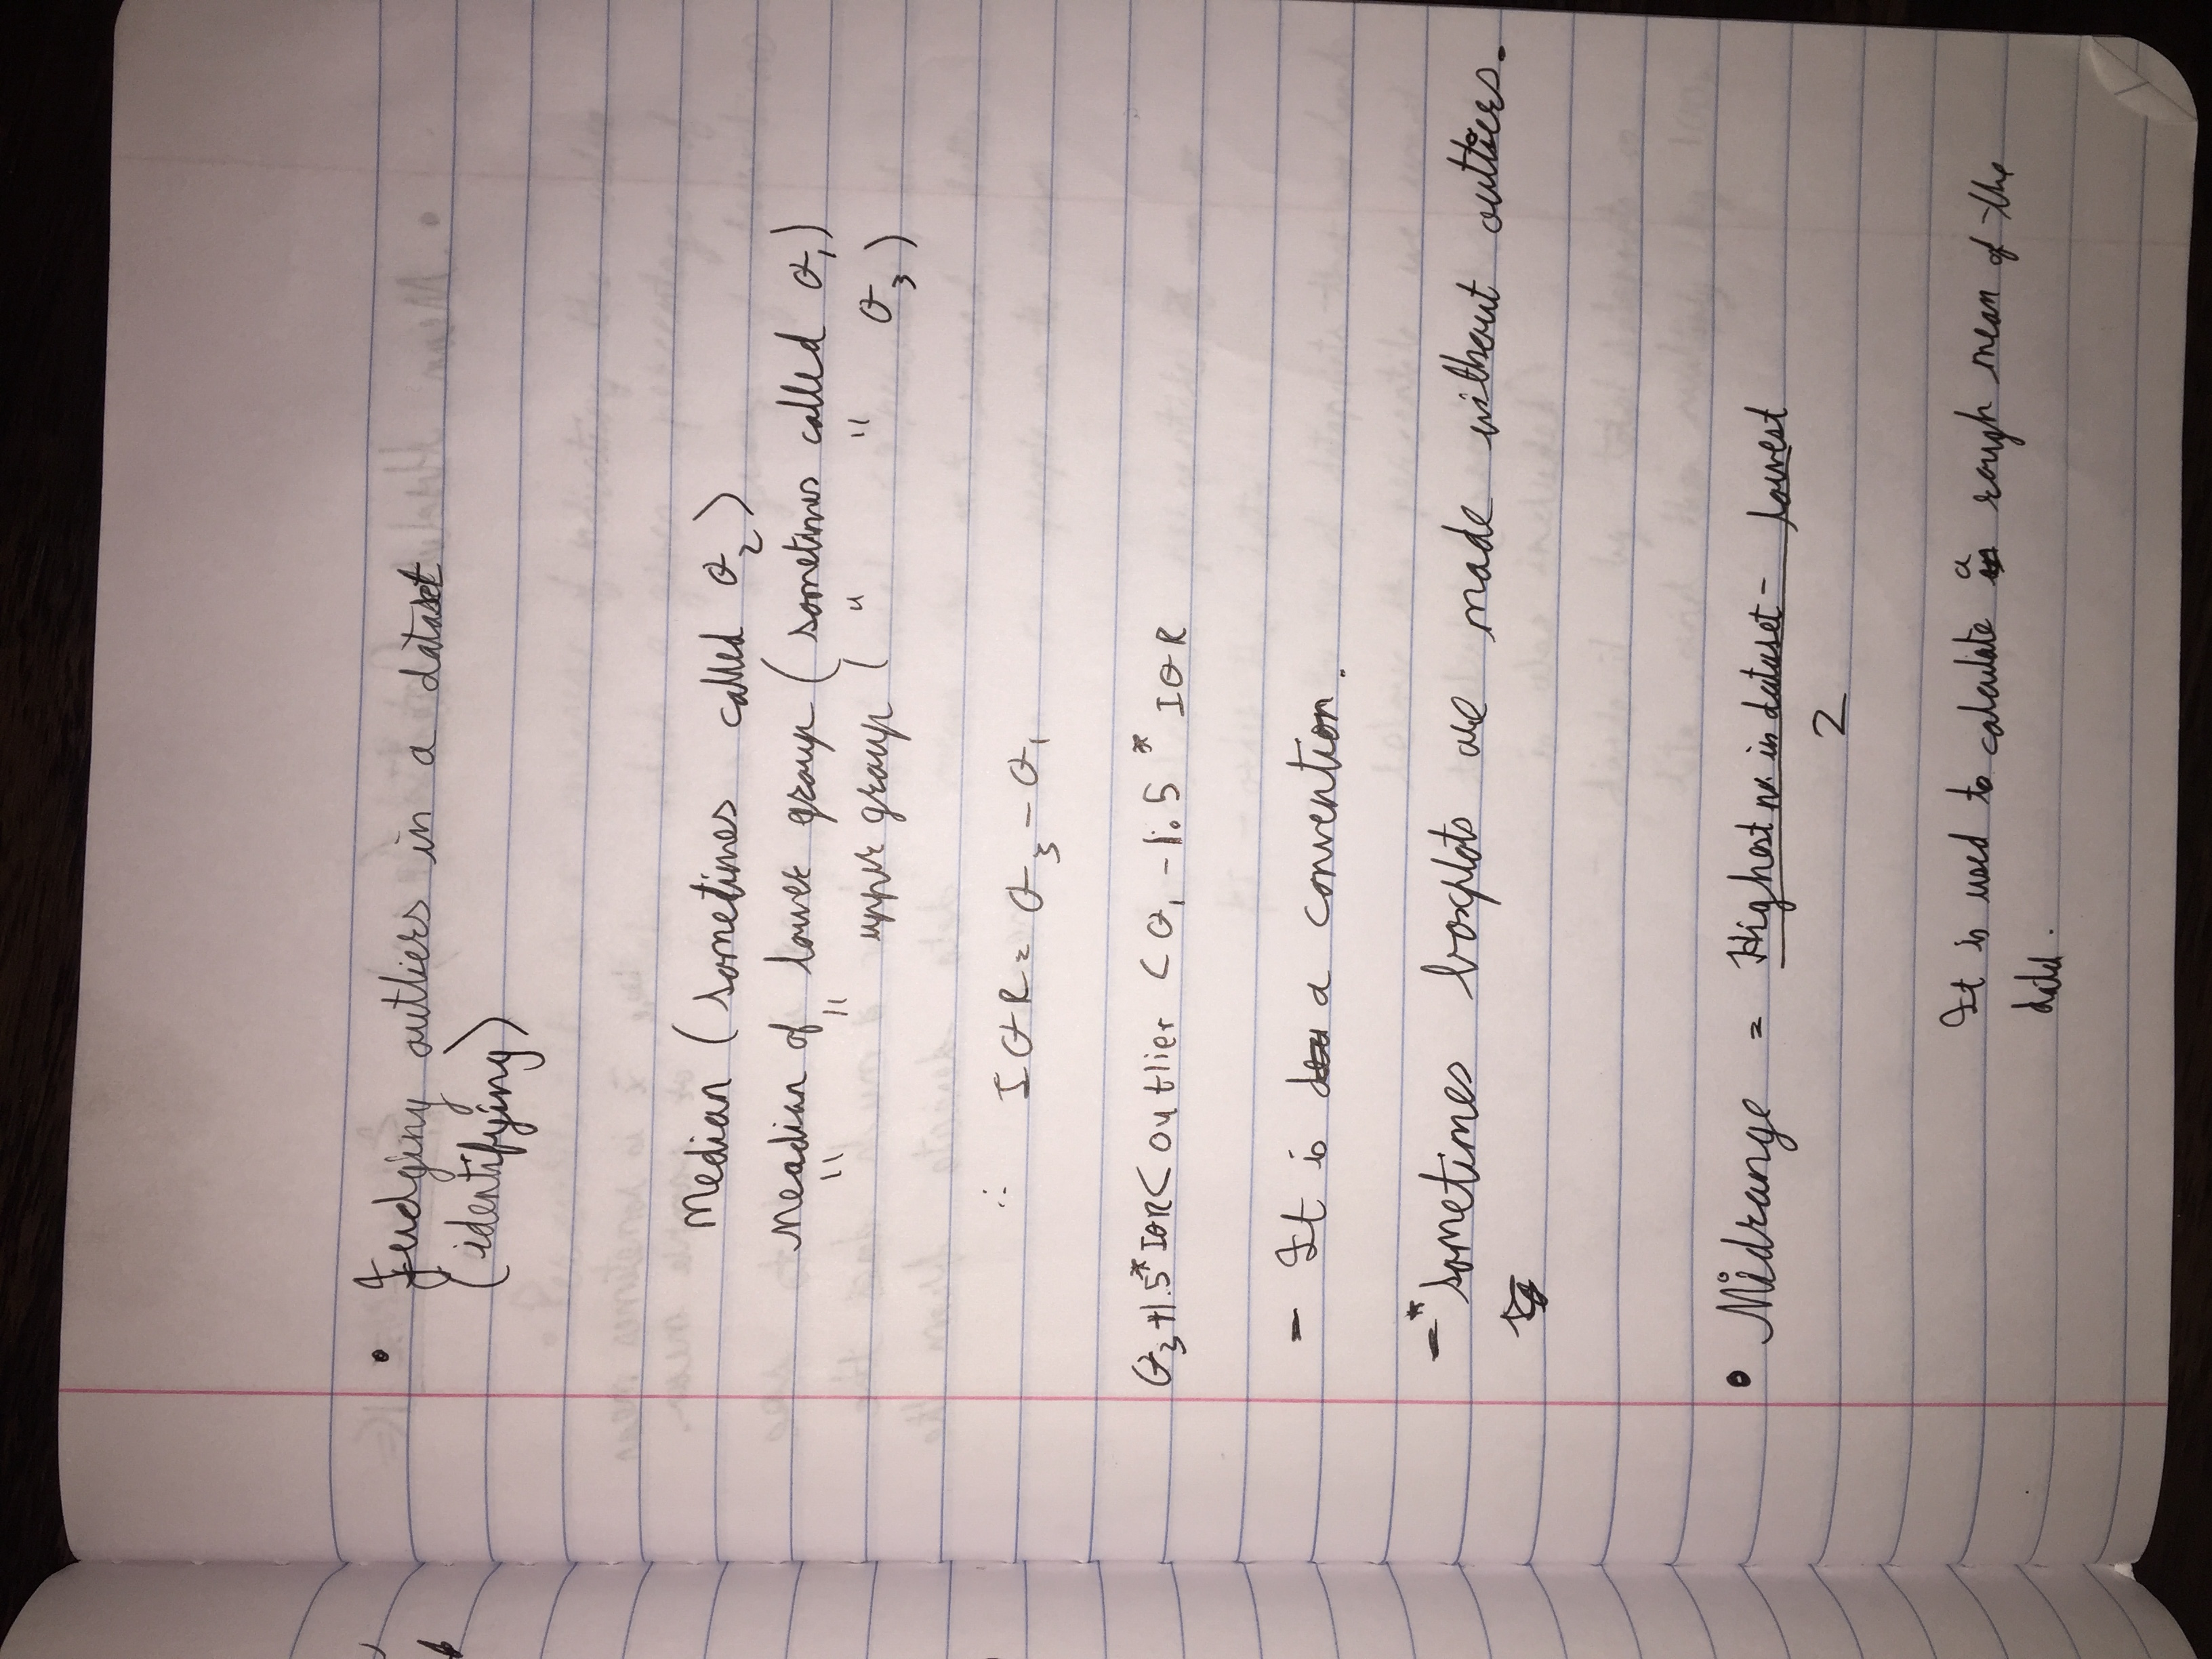 • Judging outliers in a dataset
(identifying)
Median (sometimes called Q2)
Meadian of lower group (sometimes called Q1)
" " upper group ( " " Q3)
∴ IQR = Q3 - Q1
Q3+1.5*IQR< outlier < Q1 -1.5 * IQR
- It is a convention.
-*sometimes boxplots are made without outliers.
• Midrange = Highest no. in dataset - lowest
2
It is used to calculate a rough mean of the
data.